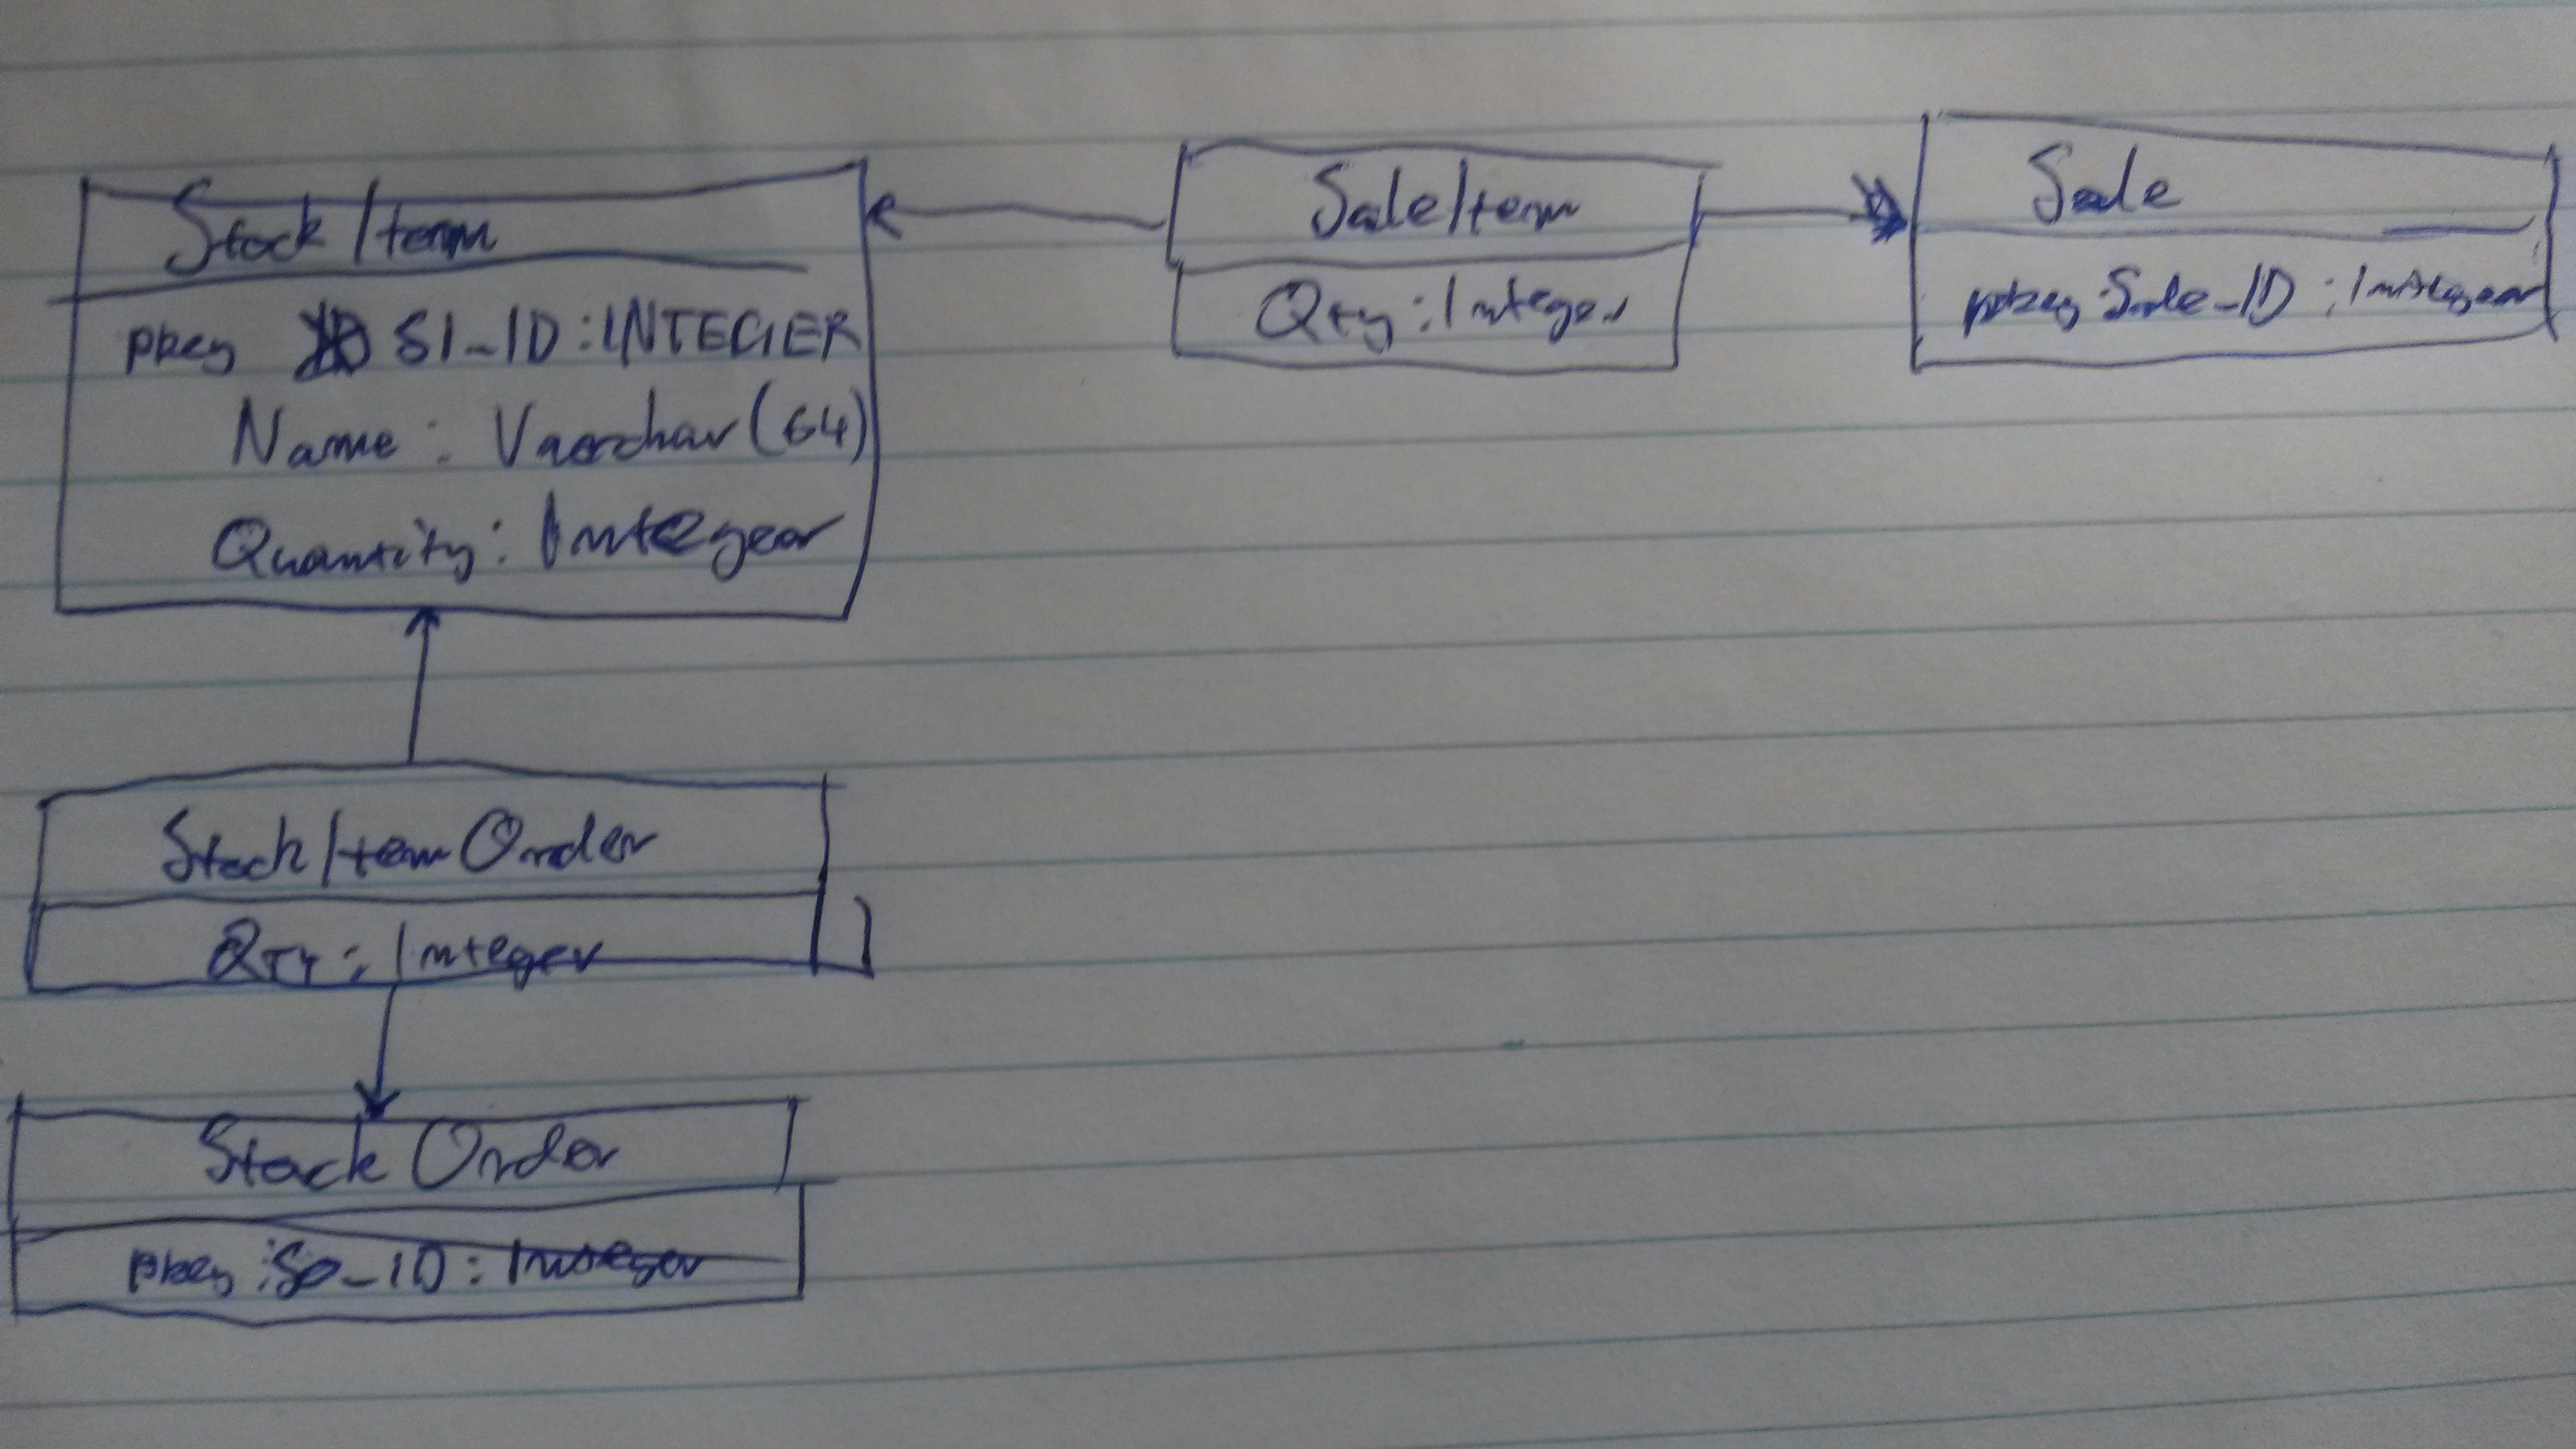 StockItem
pkey SI_ID : INTEGER
Name : Varchar(64)
Quantity : Integer
SaleItem
Qty : Integer
Sale
pkey Sale_ID : Integer
StockItemOrder
QTY : Integer
Stock Order
pkey : SO_ID : Integer